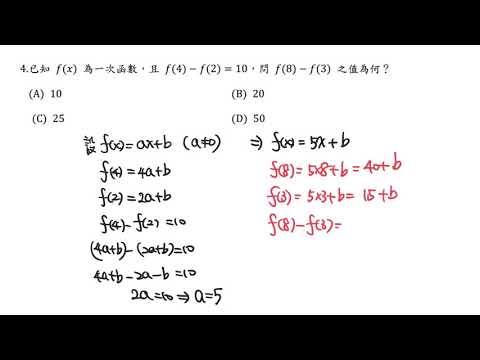 4.已知 f(x) 為一次函數，且 f(4)−f(2)=10，問 f(8)−f(3) 之值為何？
(A) 10
(B) 20
(C) 25
(D) 50
設 f(x)=ax+b (a≠0)
f(4)=4a+b
f(2)=2a+b
f(4)-f(2)=10
(4a+b)-(2a+b)=10
4a+b-2a-b=10
2a=10⇒a=5
⇒ f(x)=5x+b
f(8)=5×8+b=40+b
f(3)=5×3+b=15+b
f(8)-f(3)=